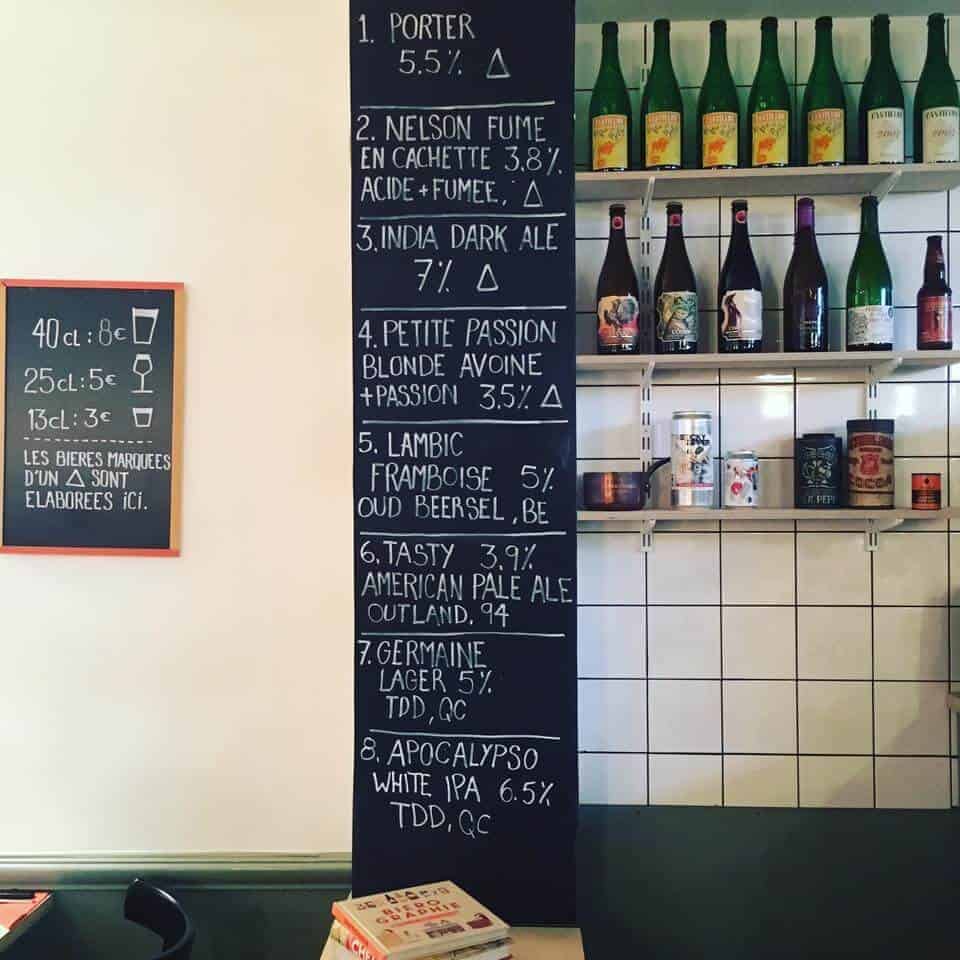 40 CL : 8€
25 CL : 5€
13 CL : 3€
LES BIERES MARQUEES
D'UN △ SONT
ELABOREES ICI.
1. PORTER
5.5% △
2. NELSON FUME
EN CACHETTE 3.8%
ACIDE + FUMEE, △
3. INDIA DARK ALE
7% △
4. PETITE PASSION
BLONDE AVOINE
+ PASSION 3.5% △
5. LAMBIC
FRAMBOISE 5%
OUD BEERSEL, BE
6. TASTY 3.9%
AMERICAN PALE ALE
OUTLAND. 94
7. GERMAINE
LAGER 5%
TDD, QC
8. APOCALYPSO
WHITE IPA 6.5%
TDD, QC
CANTILLON
COCOA
BIERO
GRAPHIE